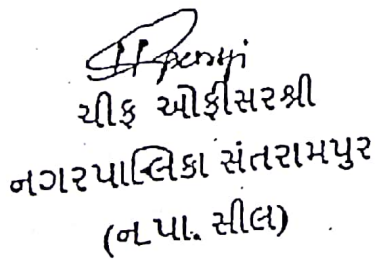 ચીફ ઓફીસરશ્રી
નગરપાલિકા સંતરામપુર
(ન.પા. સીલ)